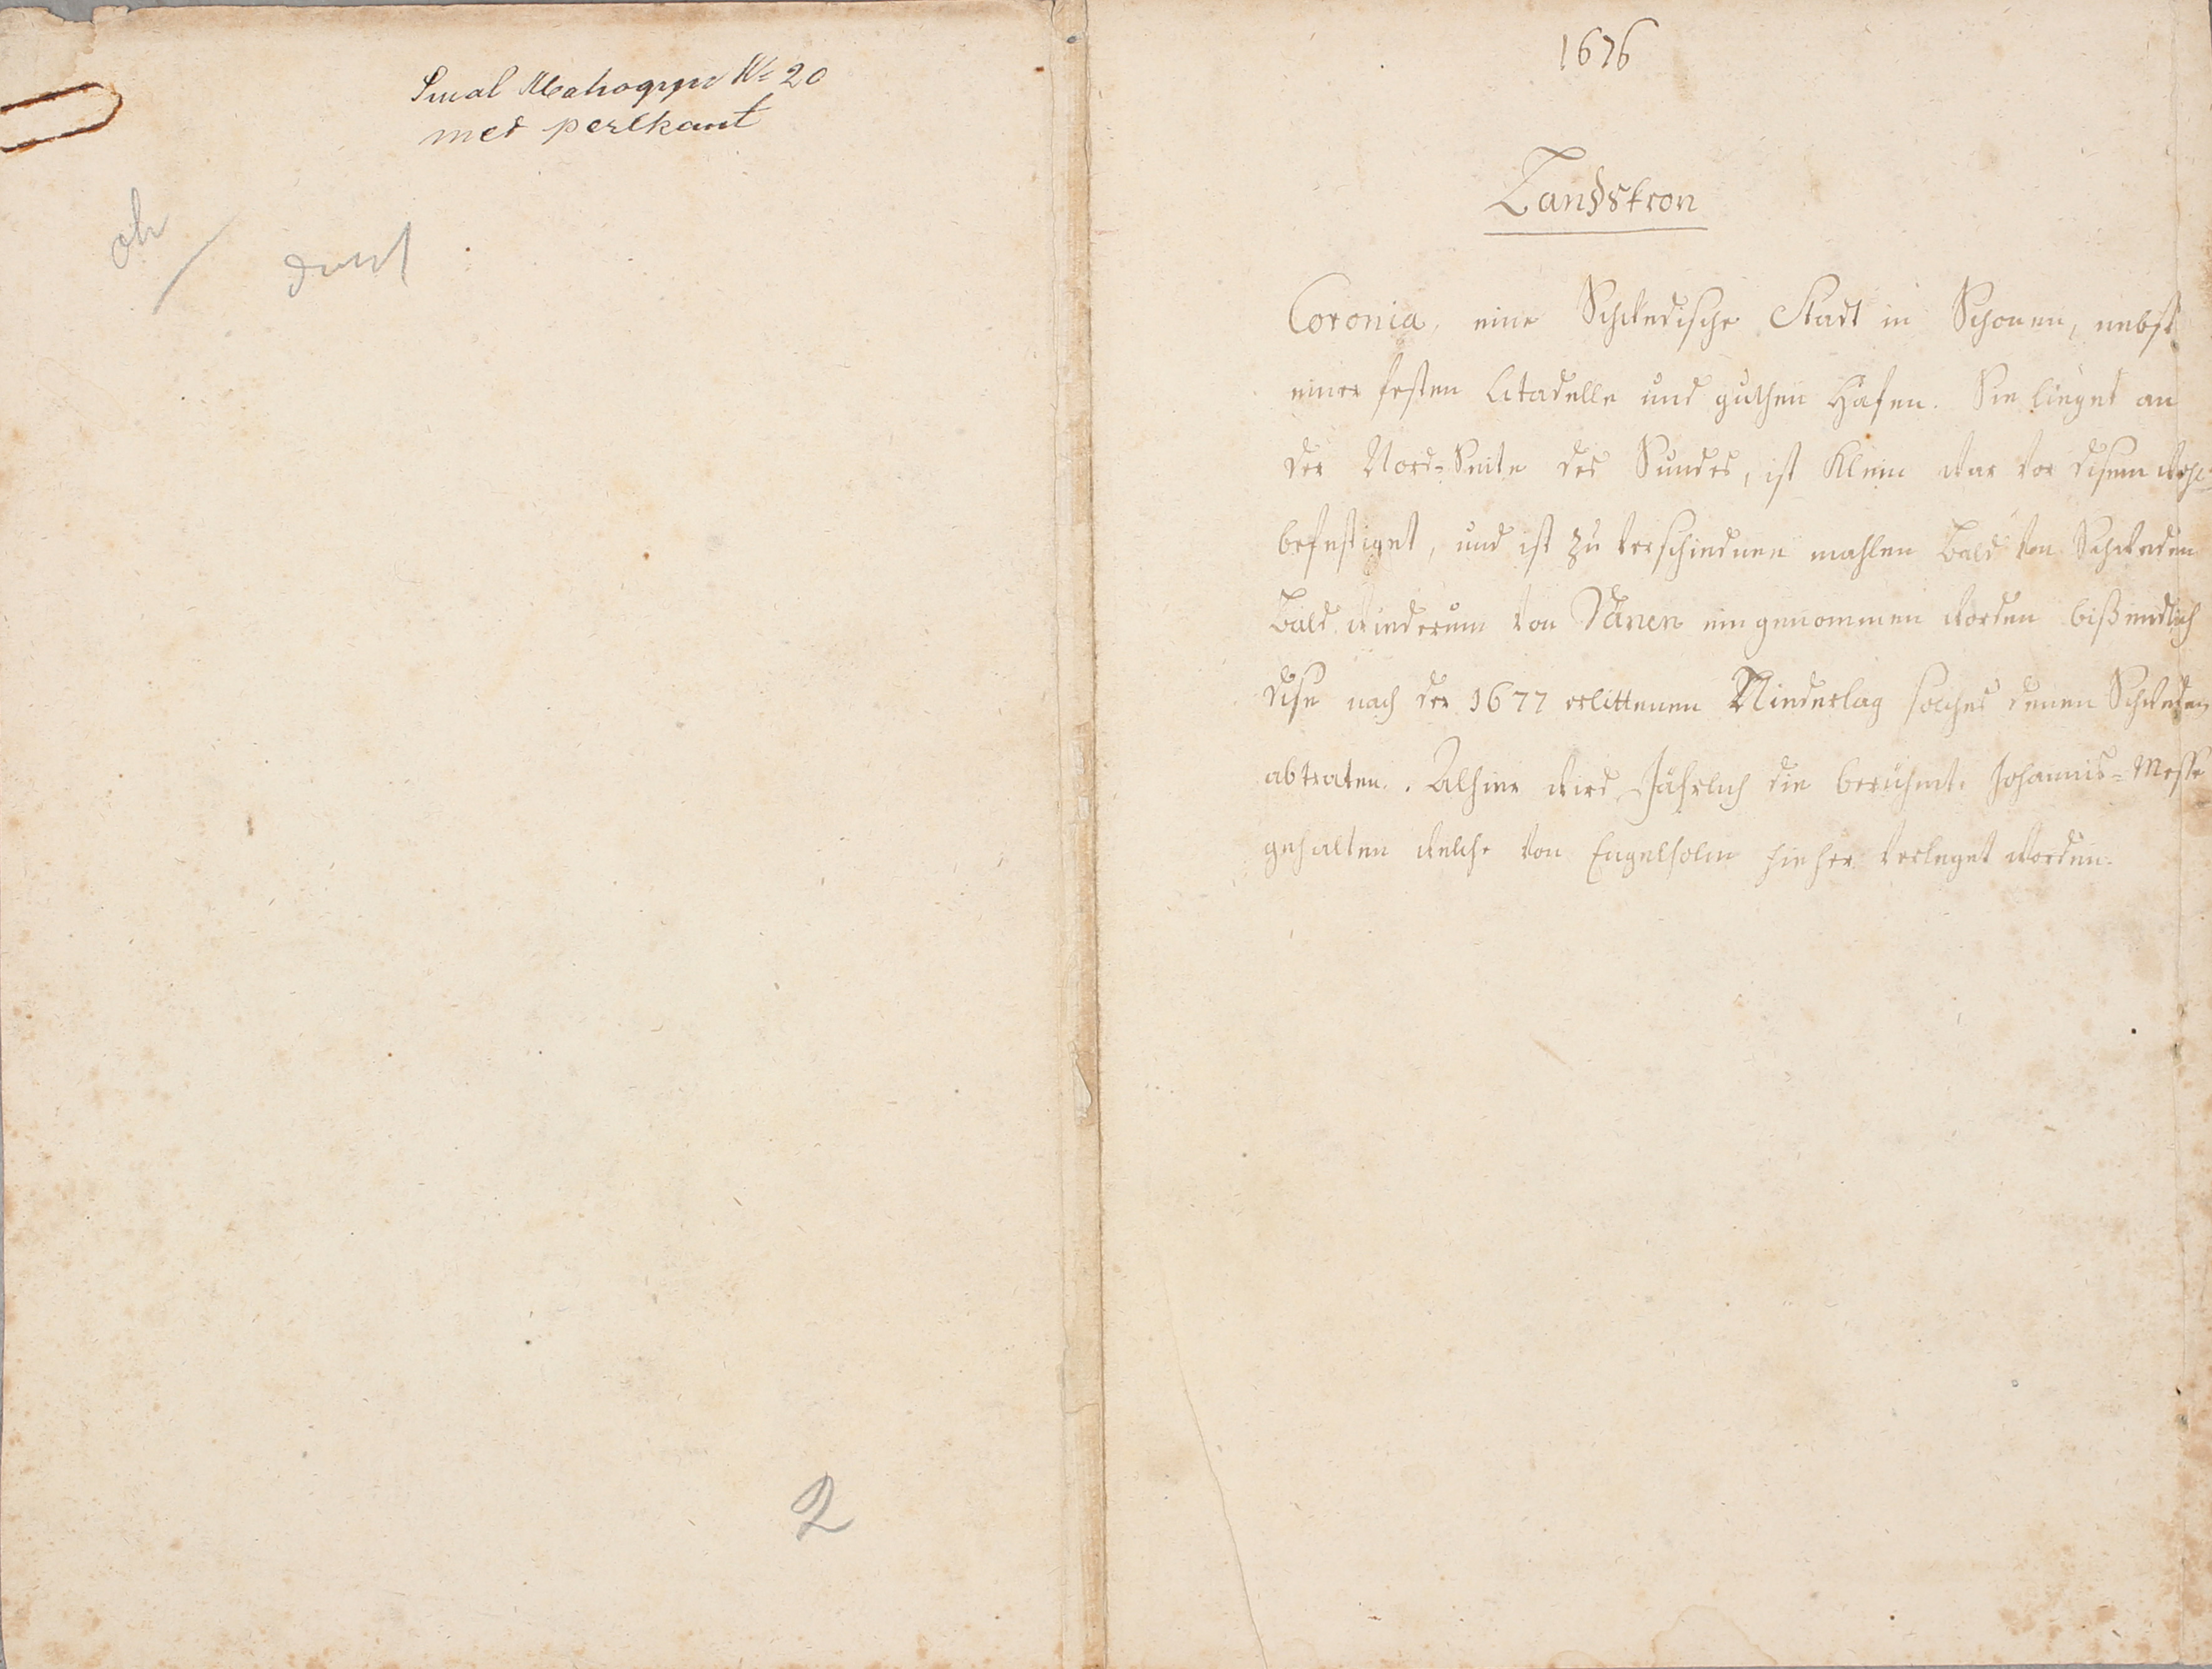 Smal Mahogni No 20
med perlkant
2
1676
Landskron
Coronia, eine Schwedische Stadt in Schonen, nebst
einer festen Citadelle und guthen Häfen. Sie lieget an
der Nord=Seite des Sundes, ist Klein war vor disem wohl=
befestiget, und ist zu verschiednen mahlen bald von Schweden
bald wiederum von Dänen eingenommen worden biß endlich
dise nach der 1677 erlittenen Niederlag solches denen Schweden
abtraten. Alhier wird Jährlich die berühmte Johannis=Messe
gehalten welche von Engelholm hieher verleget worden.